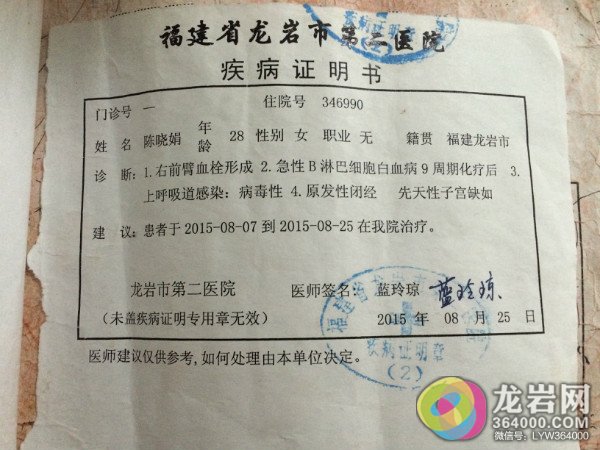 福建省龙岩市第二医院
疾病证明书
门诊号 一 住院号 346990
姓名 陈晓娟 年龄 28 性别 女 职业 无 籍贯 福建龙岩市
诊断：1.右前臂血栓形成 2.急性B淋巴细胞白血病9周期化疗后 3.
上呼吸道感染：病毒性 4.原发性闭经 先天性子宫缺如
建议：患者于 2015-08-07 到 2015-08-25 在我院治疗。
龙岩市第二医院 医师签名： 蓝玲琼 蓝玲琼
（未盖疾病证明专用章无效） 2015 年 08 月 25 日
疾病证明章
（2）
医师建议仅供参考,如何处理由本单位决定。
龙岩网
364000.com
微信号：LYW364000